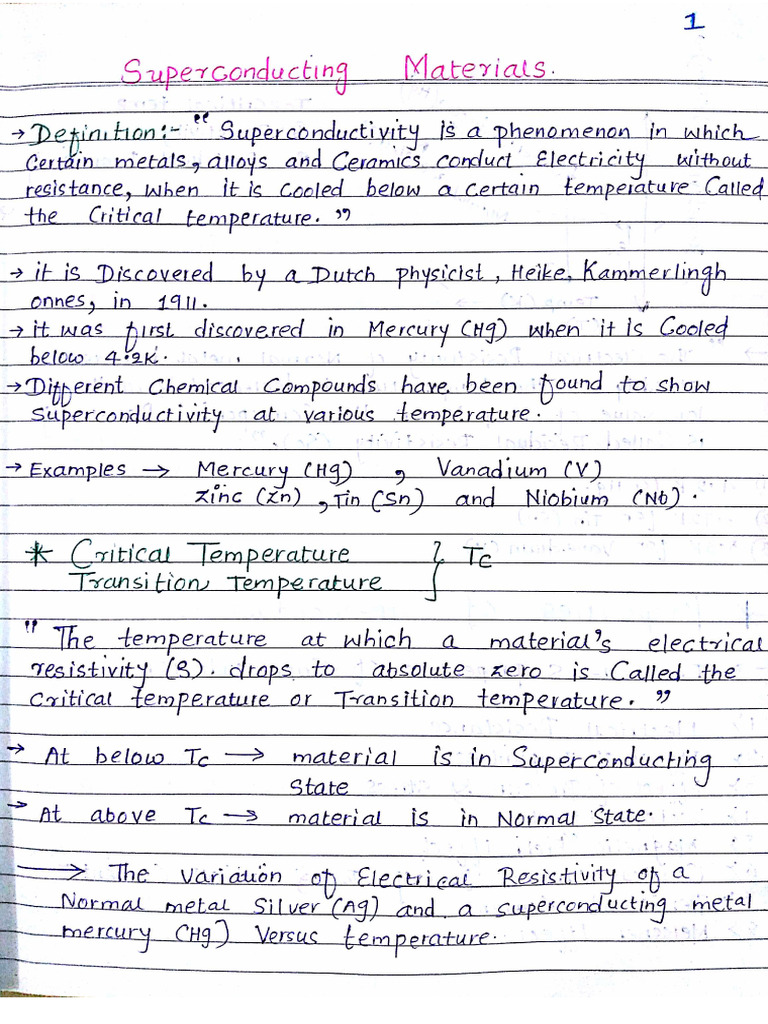 1
Superconducting Materials.
→ Definition:- " Superconductivity is a phenomenon in which
Certain metals, alloys and Ceramics conduct Electricity without
resistance, when it is Cooled below a certain temperature Called
the Critical temperature. "
→ it is Discovered by a Dutch physicist, Heike, Kammerlingh
onnes, in 1911.
→ it was first discovered in Mercury (Hg) when it is Cooled
below 4.2K.
→ Different Chemical Compounds have been found to show
Superconductivity at various temperature.
→ Examples → Mercury (Hg) , Vanadium (V)
Zinc (Zn) , Tin (Sn) and Niobium (Nb).
* Critical Temperature } Tc
Transition Temperature
" The temperature at which a material's electrical
resistivity (ρ). drops to absolute zero is Called the
Critical temperature or Transition temperature. "
→ At below Tc → material is in Superconducting
State
→ At above Tc → material is in Normal State.
→ The Variation of Electrical Resistivity of a
Normal metal Silver (Ag) and a superconducting metal
mercury (Hg) Versus temperature.